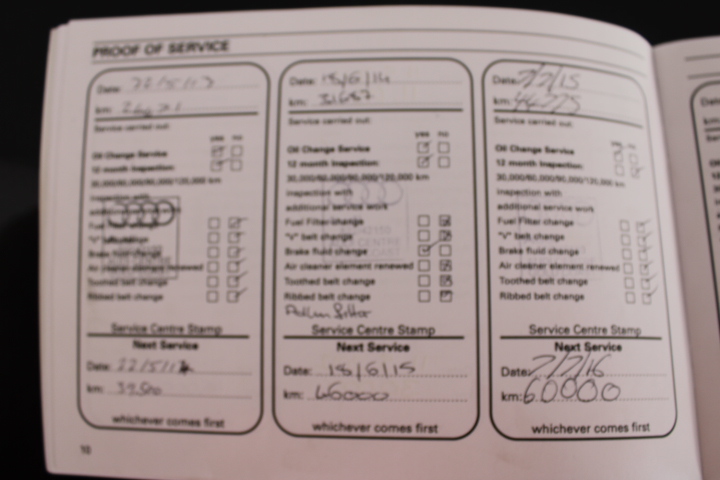 PROOF OF SERVICE
Date: 22/5/13
km:
Service carried out:
yes no
Oil Change Service
12 month Inspection:
30,000/60,000/90,000/120,000 km
inspection with
additional service work
Fuel Filter change
"V" belt change
Brake fluid change
Air cleaner element renewed
Toothed belt change
Ribbed belt change
Service Centre Stamp
Next Service
Date: 22/5/1
km:
whichever comes first
10
Date: 18/6/14
km: 31687
Service carried out:
yes no
Oil Change Service
12 month Inspection:
30,000/60,000/90,000/120,000 km
inspection with
additional service work
Fuel Filter change
"V" belt change
Brake fluid change
Air cleaner element renewed
Toothed belt change
Ribbed belt change
Pollen filter
Service Centre Stamp
Next Service
Date: 18/6/15
km: 46000
whichever comes first
Date: 7/7/15
km: 44775
Service carried out:
Oil Change Service
12 month Inspection:
30,000/60,000/90,000/120,000 km
inspection with
additional service work
Fuel Filter change
"V" belt change
Brake fluid change
Air cleaner element renewed
Toothed belt change
Ribbed belt change
Service Centre Stamp
Next Service
Date: 7/7/16
km: 60000
whichever comes first